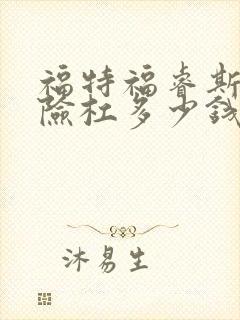 福特福睿斯
险杠多少钱
沐易生